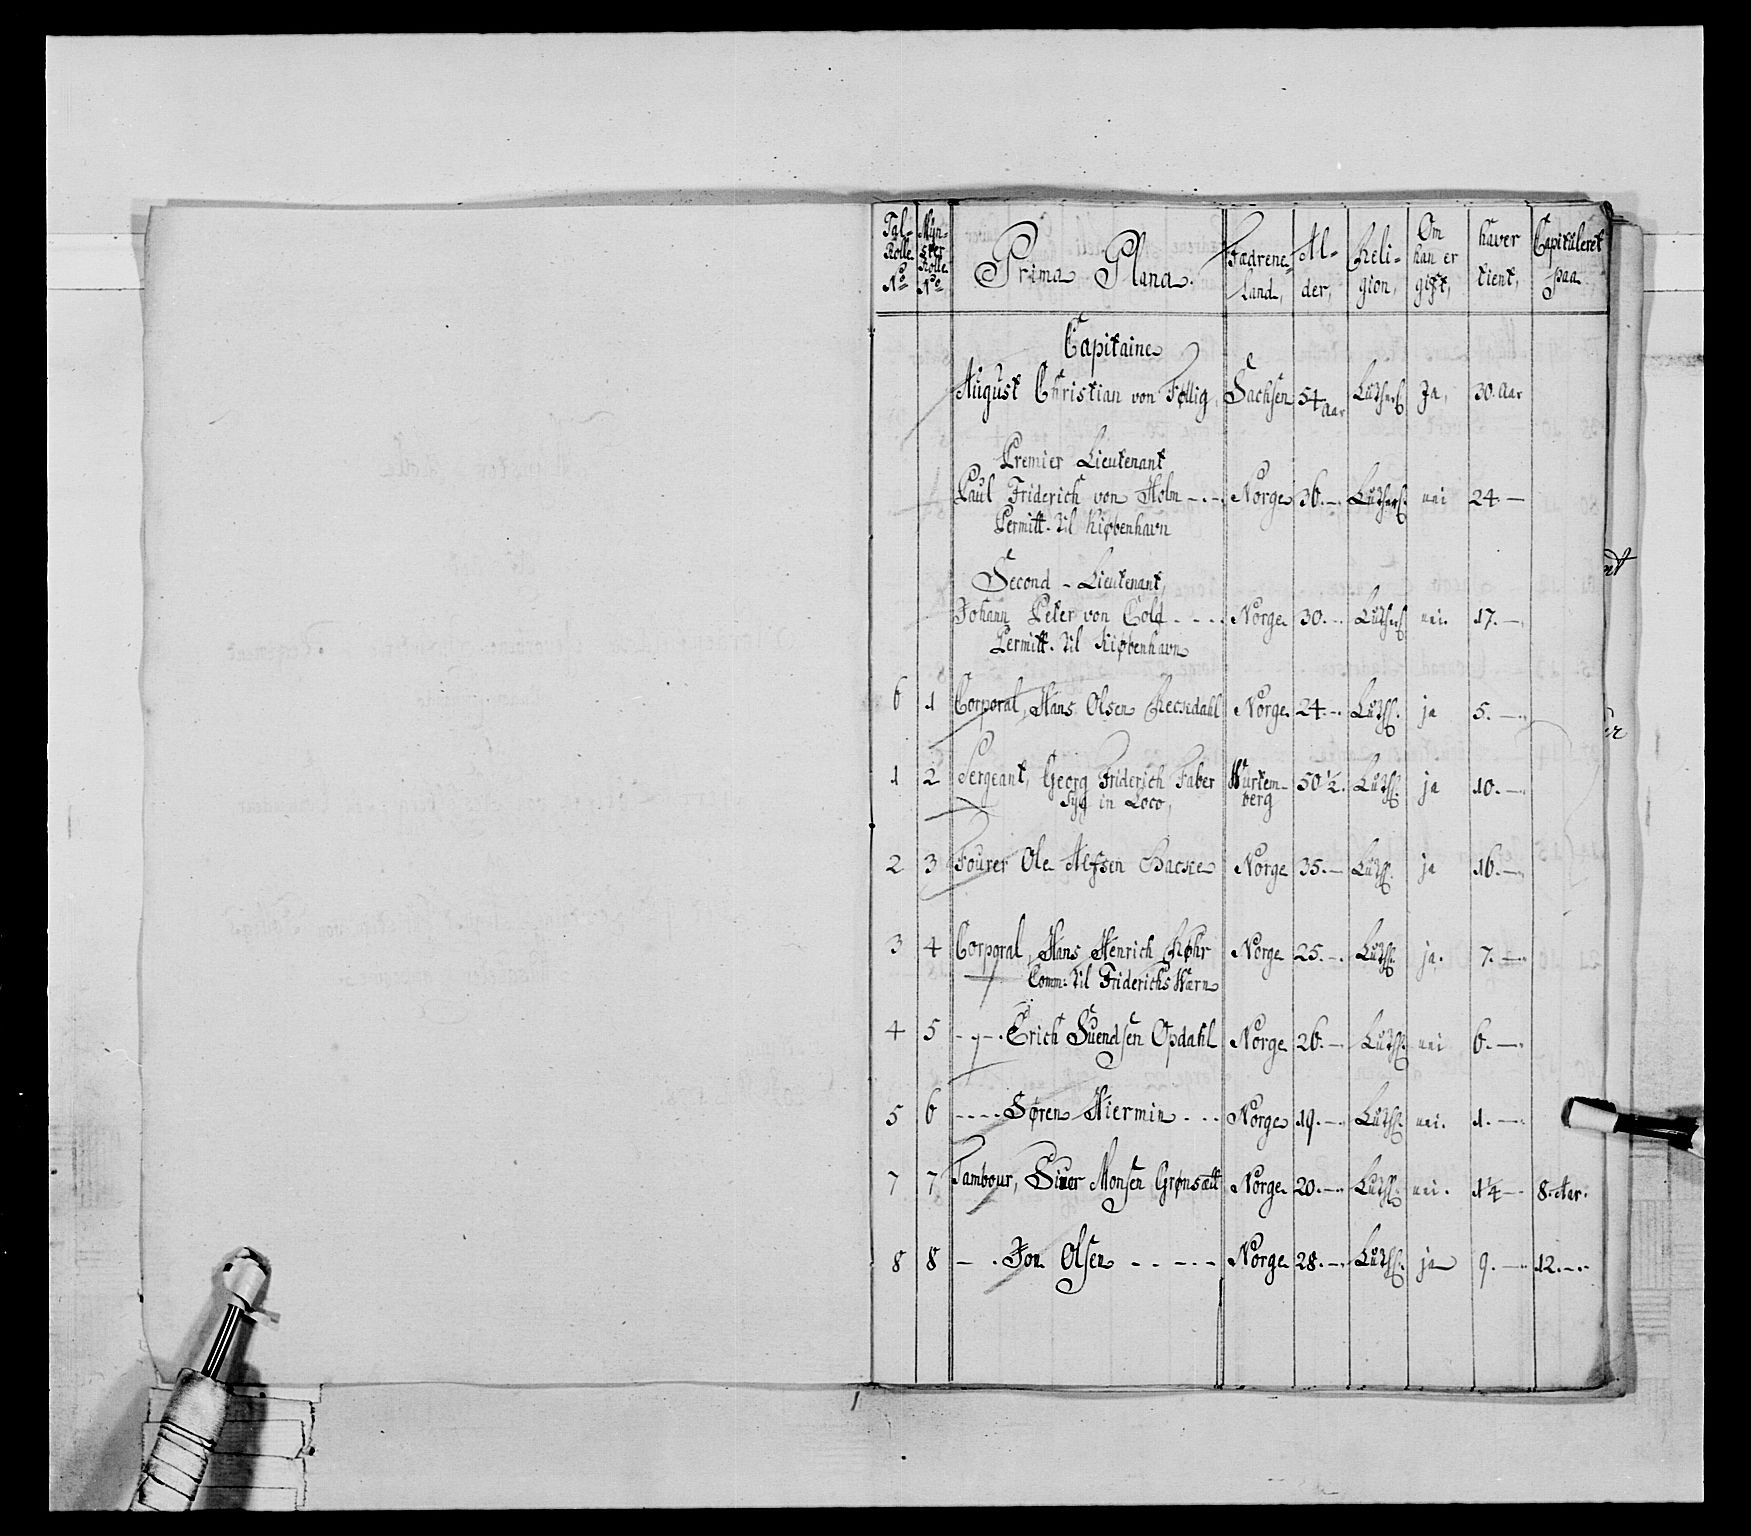 Tal- Rolle No | Myn- ster Rolle No | Prima Plana. | Fædrene- land, | Al- der, | Reli- gion, | Om han er gift, | haver tient, | Capituleret paa
Capitaine
August Christian von Føllig, | Sachsen | 54 Aar | Luthersk | Ja, | 30. Aar
Premier Lieutenant
Paul Friderich von Holm - . - . | Norge | 36. - . | Luthersk. | nei | 24. -
Permitt. til Kiøbenhavn
Second - Lieutenant,
Johann Peter von Cold . . . . | Norge | 30. - . | Luthersk | nei. | 17. - .
Permitt. til Kiøbenhavn
6 | 1 | Corporal, Hans Olsen | Norge | 24. - . | Luth. | ja | 5. - .
1 | 2 | Sergeant, Georg Friderich Faber | Würtem- berg | 50 ½. | Luth. | ja | 10. - .
Syg in Loco,
2 | 3 | Fourer Ole Alfsen Backe | Norge | 35. - | Luth. | ja | 16. - .
3 | 4 | Corporal, Hans Henrich Røhr | Norge | 25. - . | Luth. | ja. | 7. - .
Comm: til Friderichs Wærn
4 | 5 | - . - . Erich Suendsen Opdahl | Norge | 26. - | Luth. | nei | 6. - .
5 | 6 | - - - - Søren Hiermin . . . | Norge | 19. - . | Luth. | nei. | 1. - .
7 | 7 | Tambour, Siuer Monsen Grønsætt | Norge | 20. - . | Luth. | nei. | 1¼ - . | 8. Aar.
8 | 8 | - . Jon Olsen - - . - . - | Norge | 28. - . | Luth. | ja | 9. - . | 12. - . -